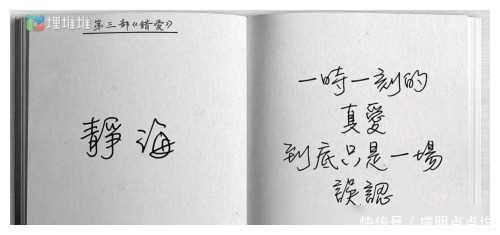 埋堆堆
第三部《錯愛》
靜海
一時一刻的
真愛
到底只是一場
誤認
快传号／成明点点说